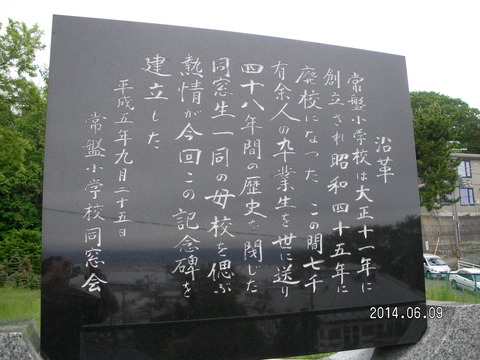 沿革
常盤小学校は大正十一年に
創立され昭和四十五年に
廃校になった この間七千
有余人の卒業生を世に送り
四十八年間の歴史を閉じた
同窓生一同の母校を偲ぶ
熱情が今回この記念碑を
建立した
平成五年九月二十五日
常盤小学校同窓会
2014.06.09